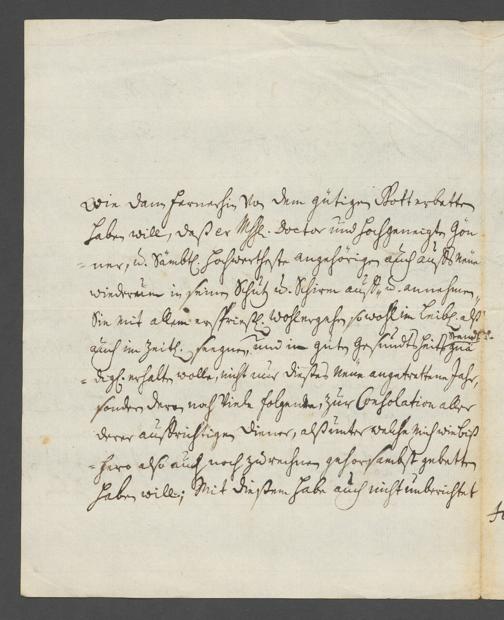 Wie dann fernerhin von dem gütigen Gott erbetten
haben will, daß er Mhh. Doctor und hochgeneigten Gön-
=ner, u. sämbtl. hochwertheste angehörigen auch auffs neue
wiederum in seinen Schutz u. Schirm auff- u. annehmen,
Sie mit allem ersprießl. wohlergehen, so wohl im Leibl. alß
auch im Zeitl. seegnen, und in guten Gesundtheits
=digl. erhalten wolle, nicht nur dießes neue angetrettene Jahr,
sondern deren noch viele folgende, zur Consolation aller
derer auffrichtigen Diener, alß unter welche mich wie biß-
=hero also auch noch zu rechnen gehorsambst gebetten
haben will; Mit dießem habe auch nicht unberichtet